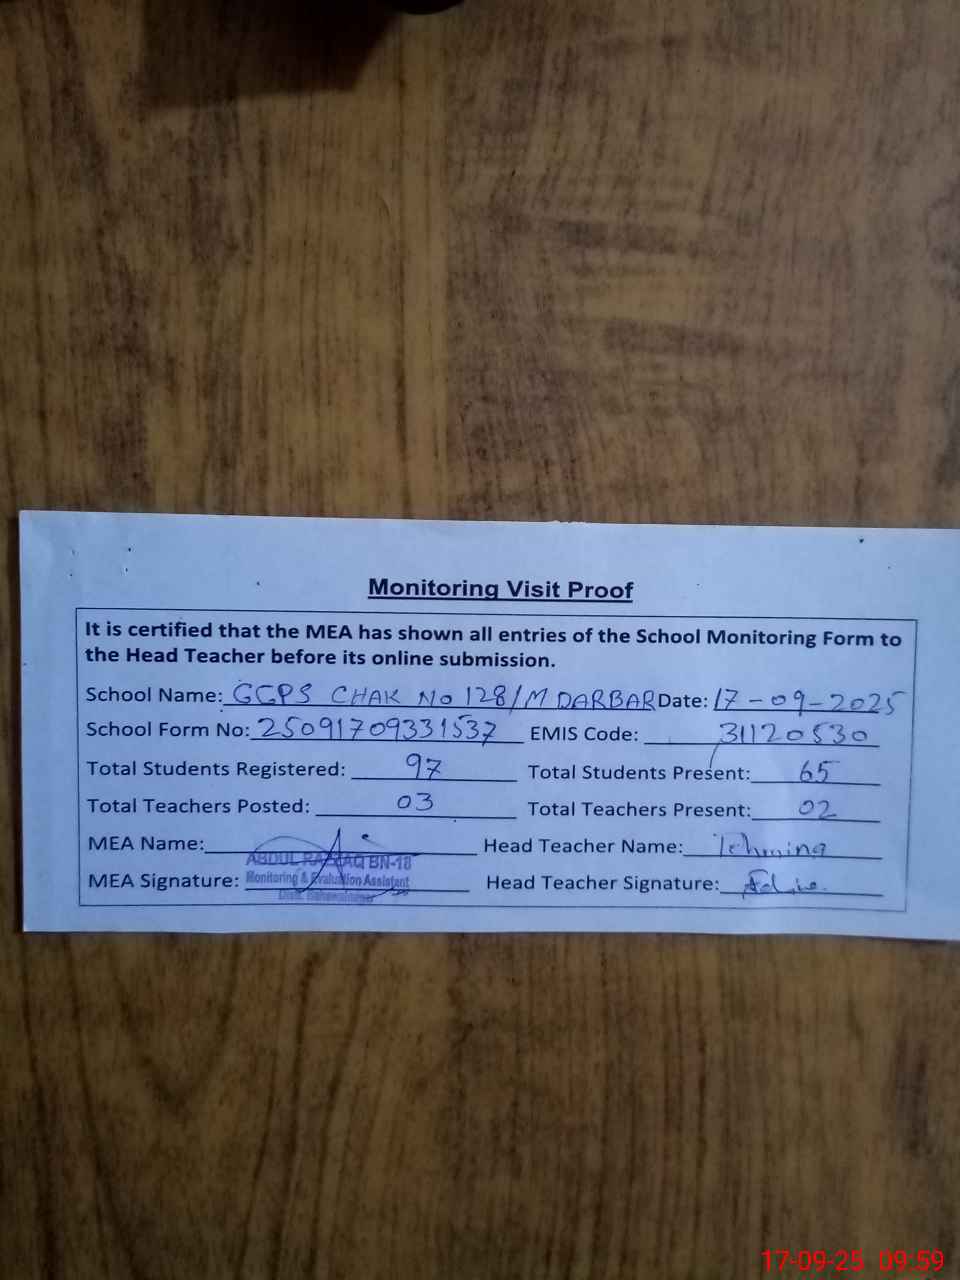 Monitoring Visit Proof
It is certified that the MEA has shown all entries of the School Monitoring Form to
the Head Teacher before its online submission.
School Name: GGPS CHAK No 128/M DARBAR Date: 17-09-2025
School Form No: 25091709331537 EMIS Code: 31120530
Total Students Registered: 97 Total Students Present: 65
Total Teachers Posted: 03 Total Teachers Present: 02
MEA Name: Head Teacher Name: Tehmina
ABDUL RAZZAQ BN-18
MEA Signature: Monitoring & Evaluation Assistant Head Teacher Signature:
Distt. Bahawalnagar
17-09-25 09:59